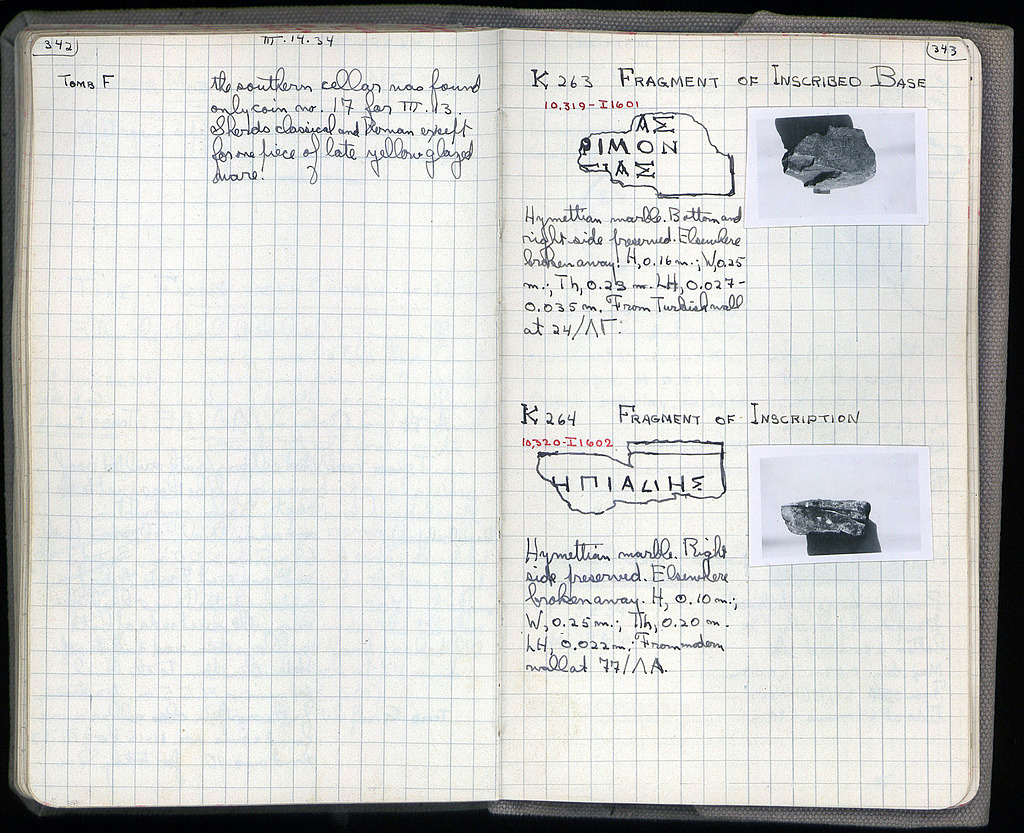 342
III.14.34
Tomb F
the southern cellar was found
only coin no. 17 for III.13.
Sherds classical and Roman except
for one piece of late yellow glazed
ware.
343
K 263 Fragment of Inscribed Base
10,319-I1601
ΑΣ
ΡΙΜΟΝ
ΙΑΣ
Hymettian marble. Bottom and
right side preserved. Elsewhere
broken away. H, 0.16 m.; W, 0.25
m.; Th, 0.23 m. LH, 0.027-
0.035 m. From Turkish wall
at 24/ΛΓ.
K 264 Fragment of Inscription
10,320-I1602
ΗΠΙΑΔΗΣ
Hymettian marble. Right
side preserved. Elsewhere
broken away. H, 0.10 m.;
W, 0.25 m.; Th, 0.20 m.
LH, 0.022 m. From modern
wall at 77/ΛΑ.